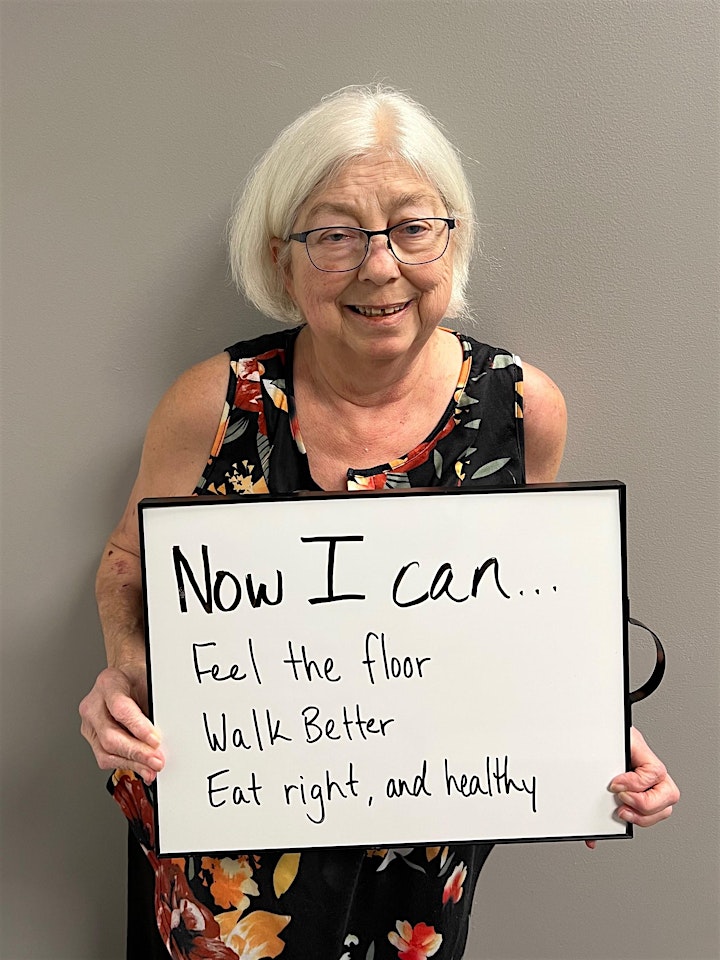 Now I can...
Feel the floor
Walk Better
Eat right, and healthy